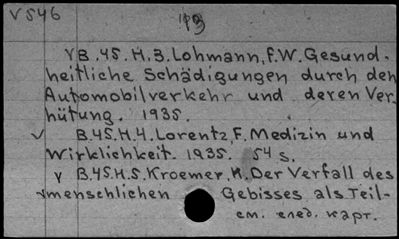 V 546
13
V B.45.H.3. Lohmann, F.W. Gesund-
heitliche Schädigungen durch den
Automobilverkehr und deren Ver-
hütung. 1935.
V B.45.H.4. Lorentz, F. Medizin und
Wirklichkeit. 1935. 54 s.
V B.45.H.5. Kroemer, K. Der Verfall des
menschlichen Gebisses als Teil-
см. след. карт.